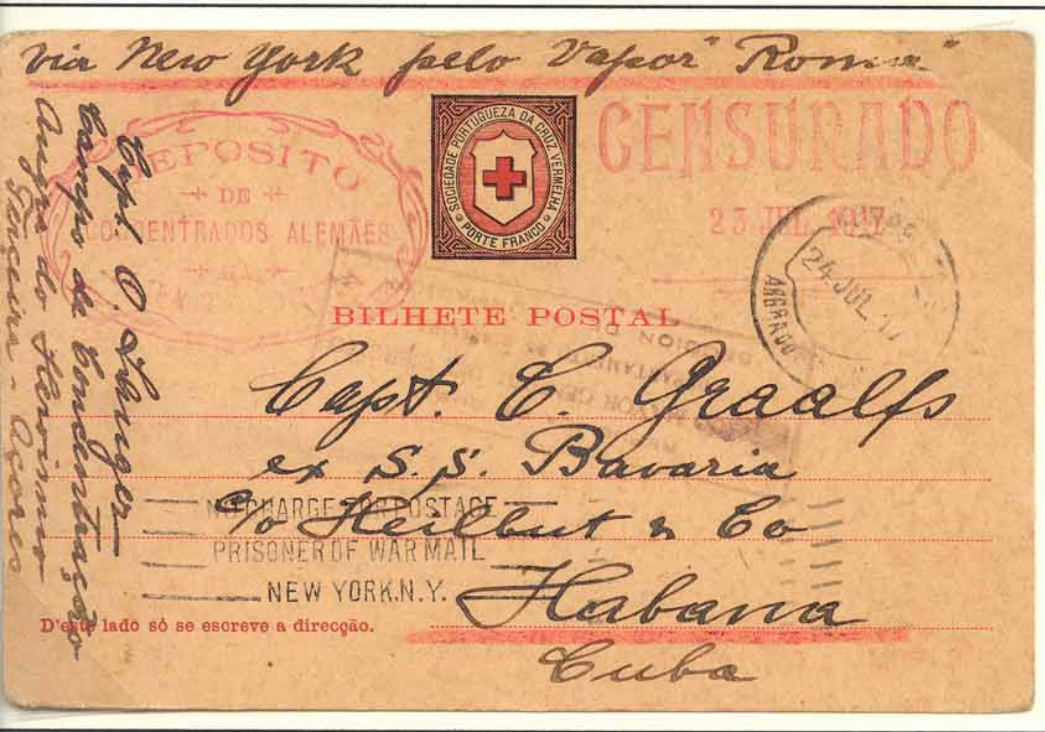 via New York pelo Vapor "Roma"
CENSURADO
23 JUL 1917
DEPOSITO
DE
CONCENTRADOS ALEMÃES
NA
SOCIEDADE PORTUGUEZA DA CRUZ VERMELHA
PORTE FRANCO
24 JUL 17
BILHETE POSTAL
Capt. E. Graalfs
ex S.S. Bavaria
c/o Heilbut & Co
Habana
Cuba
NO CHARGE FOR POSTAGE
PRISONER OF WAR MAIL
NEW YORK.N.Y.
D'este lado só se escreve a direcção.
Capt. O.
Campo de Concentração
Angra do Heroismo
Terceira - Açores